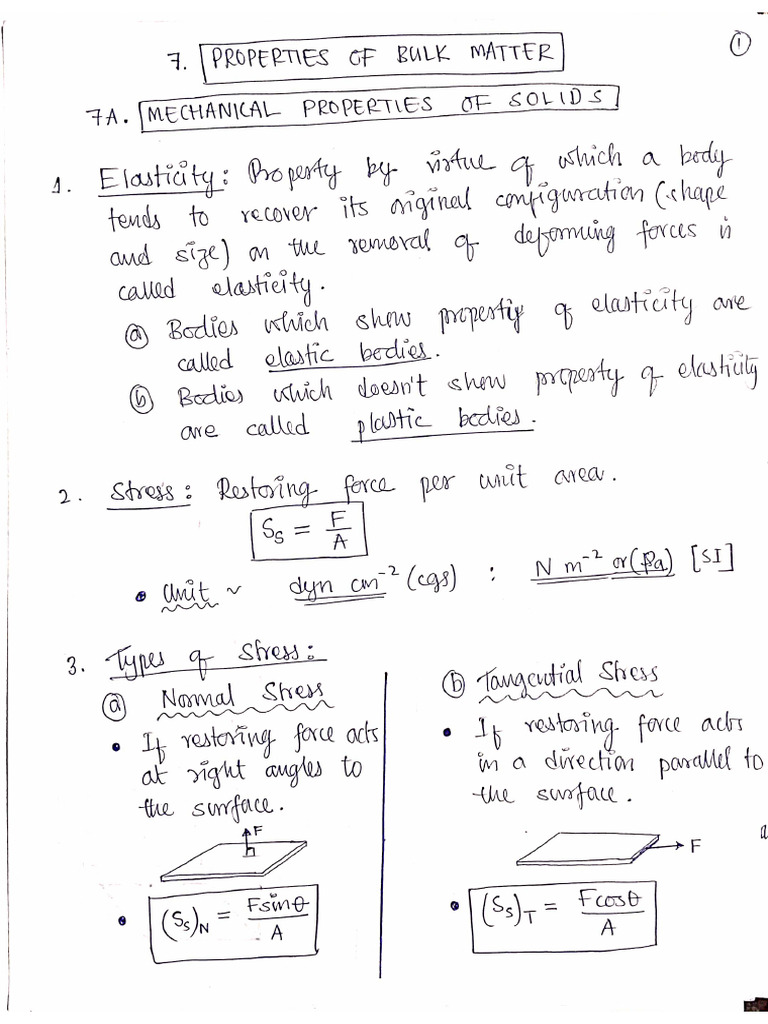 1
7. PROPERTIES OF BULK MATTER
7A. MECHANICAL PROPERTIES OF SOLIDS
1. Elasticity: Property by virtue of which a body
tends to recover its original configuration (shape
and size) on the removal of deforming forces is
called elasticity.
(a) Bodies which show propertiy of elasticity are
called elastic bodies.
(b) Bodies which doesn't show property of elasticity
are called plastic bodies.
2. Stress: Restoring force per unit area.
S_s = F/A
• Unit ~ dyn cm⁻² (cgs) : N m⁻² or (Pa) [SI]
3. Types of Stress:
(a) Normal Stress
• If restoring force acts
at right angles to
the surface.
F
• (S_s)_N = Fsinθ/A
(b) Tangential Stress
• If restoring force acts
in a direction parallel to
the surface.
F
• (S_s)_T = Fcosθ/A